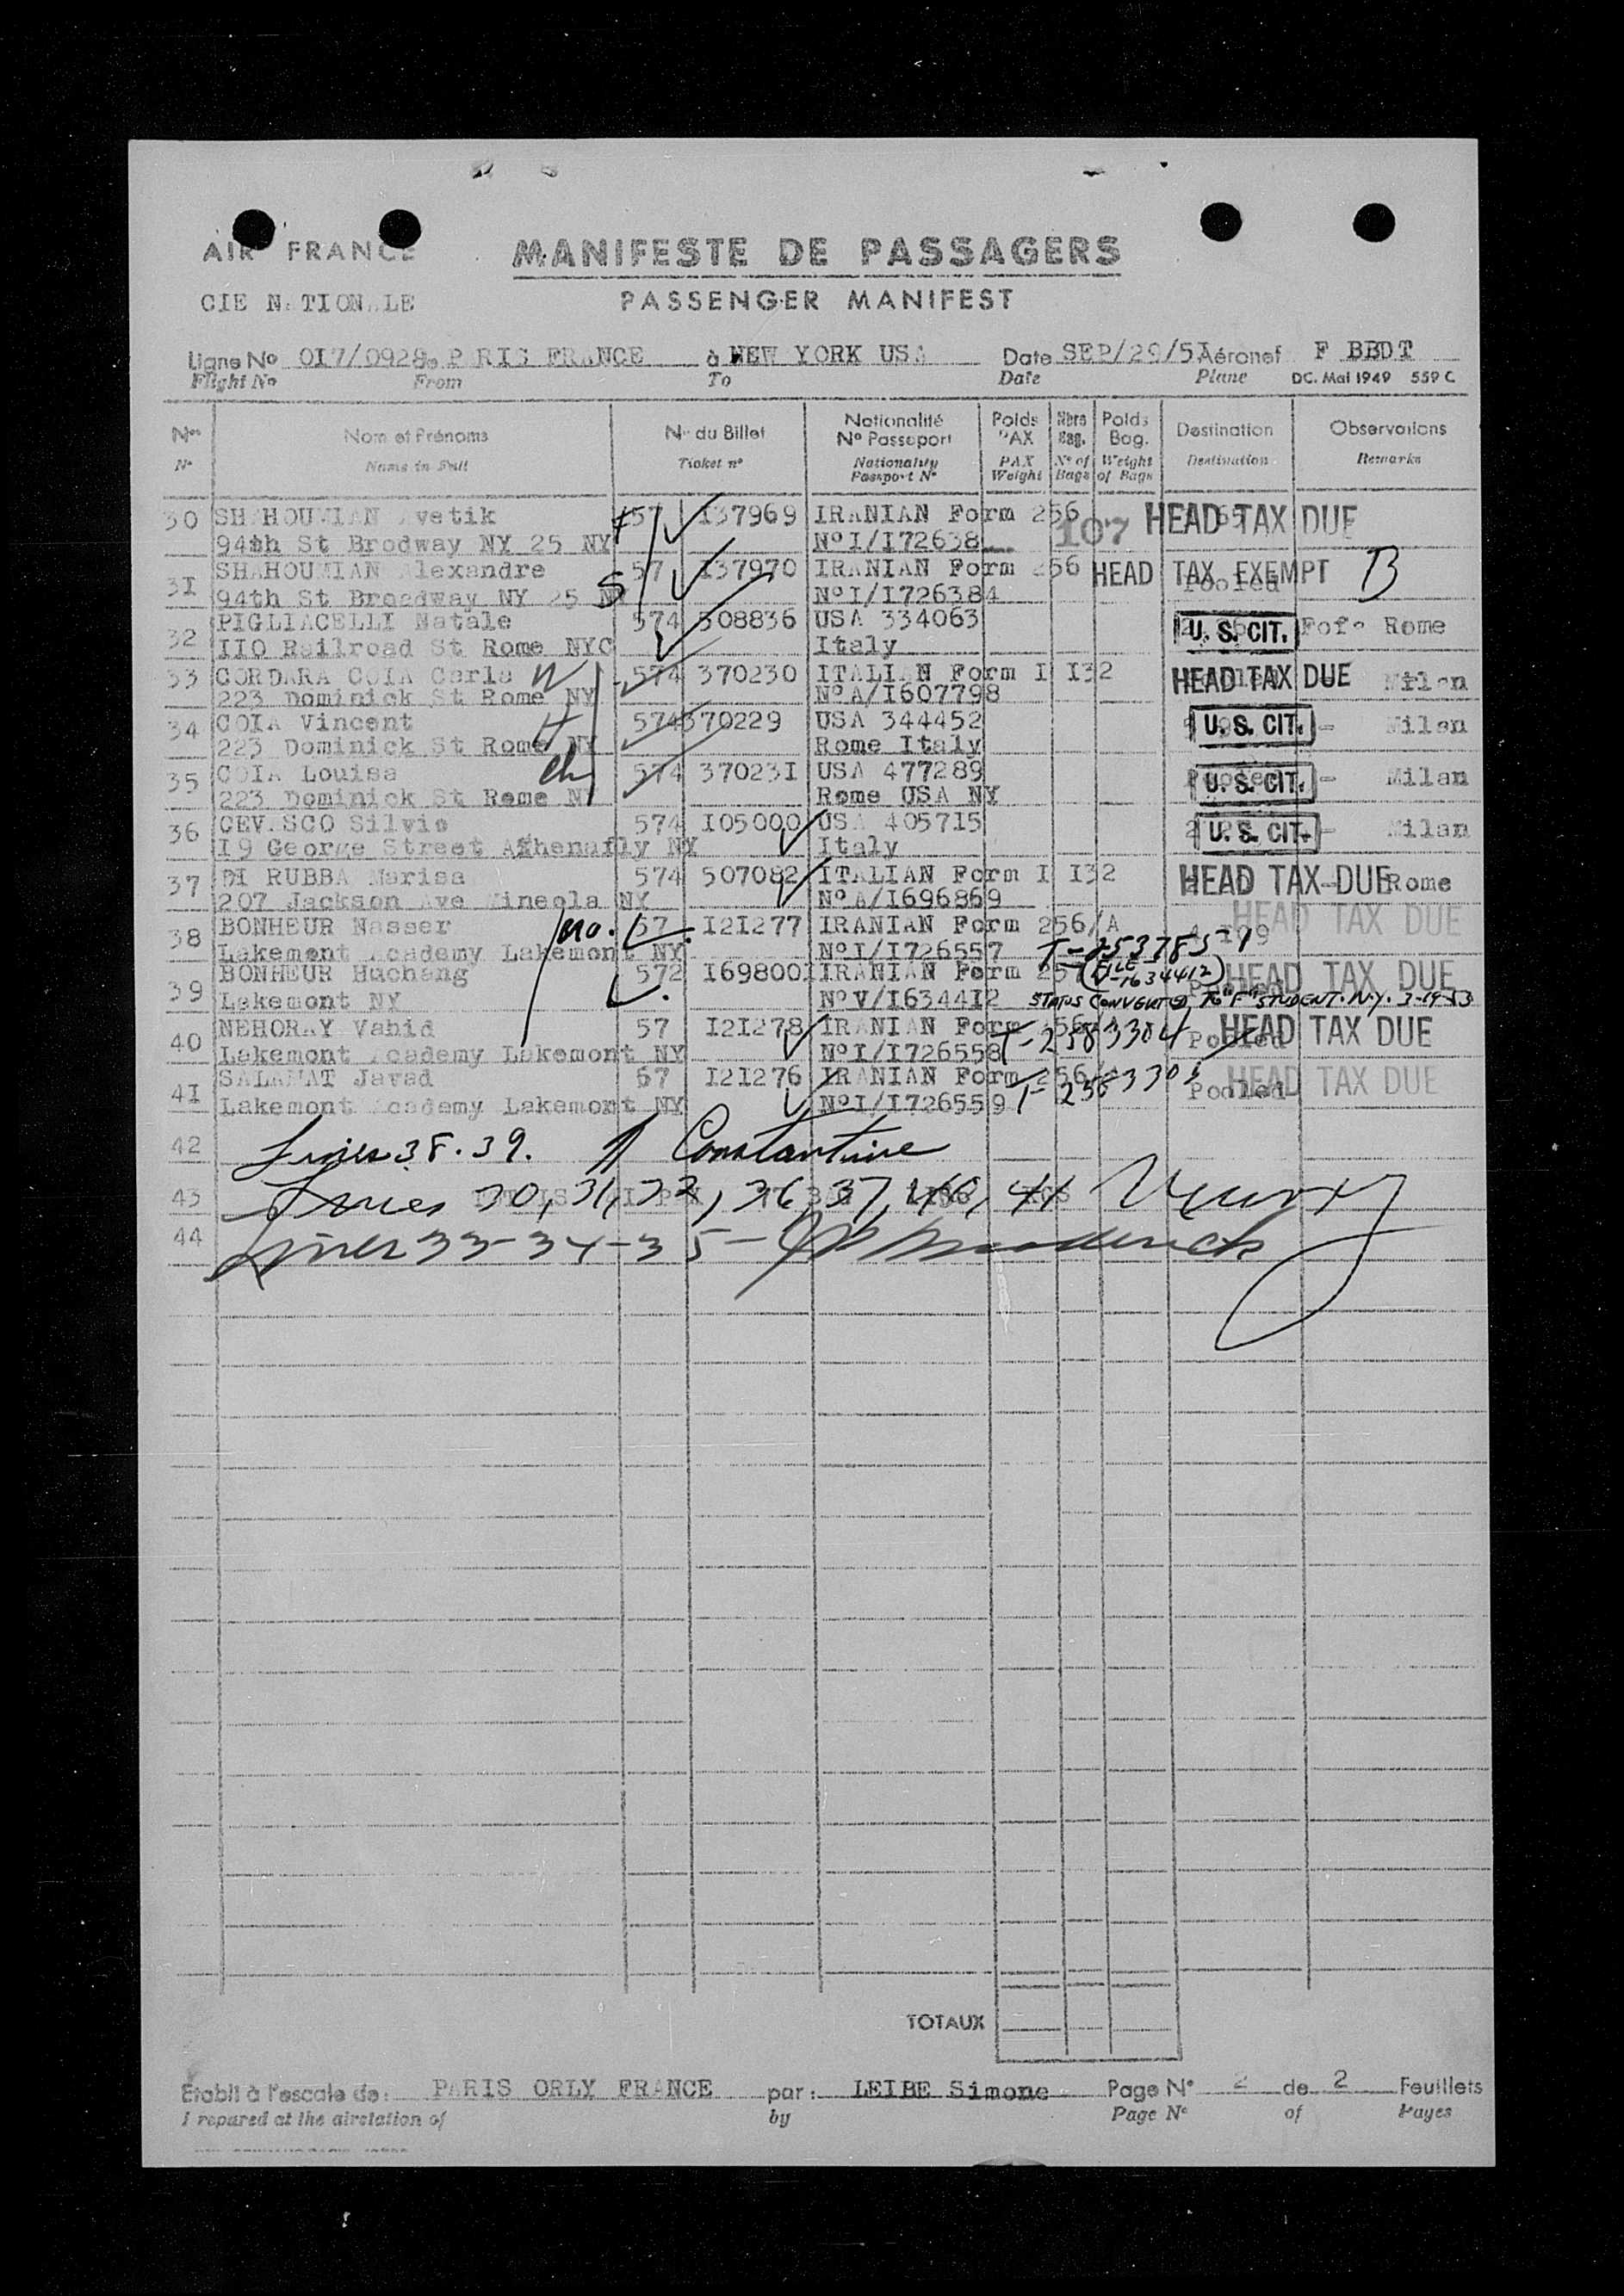 AIR FRANCE
MANIFESTE DE PASSAGERS
CIE N TION LE
PASSENGER MANIFEST
Ligne No OI7/0928 de P RIS FRANCE à NEW YORK USA Date SEP/29/51 Aéronef F BBDT
Flight No From To Date Plane DC. Mai 1949 559 C
Nos Nom et Prénoms No du Billet Nationalité No Passeport Poids PAX Nbre Bag. Poids Bag. Destination Observations
No Name in Full Ticket no Nationality Passport No PAX Weight No of Bags Weight of Bags Destination Remarks
30 SHAHOUMIAN Avetik 57 I37969 IRANIAN Form 256 107 HEAD TAX DUE
94th St Brodway NY 25 NY No I/I72638
3I SHAHOUMIAN Alexandre 57 I37970 IRANIAN Form 256 HEAD TAX EXEMPT B
94th St Broadway NY 25 NY No I/I726384 Pooled
32 PIGLIACELLI Natale 574 508836 USA 334063 U. S. CIT. Fof° Rome
IIO Railroad St Rome NYC Italy
33 CORDARA COIA Carla W 574 370230 ITALIAN Form I I32 HEAD TAX DUE Milan
223 Dominick St Rome NY No A/I607798
34 COIA Vincent H 574 370229 USA 344452 U. S. CIT. - Milan
223 Dominick St Rome NY Rome Italy
35 COIA Louisa ch 574 37023I USA 477289 U. S. CIT. - Milan
223 Dominick St Rome NY Rome USA NY
36 CEVASCO Silvio 574 I05000 USA 405715 U. S. CIT. - Milan
I9 George Street Athenafly NY Italy
37 DI RUBBA Marisa 574 507082 ITALIAN Form I I32 HEAD TAX DUE Rome
207 Jackson Ave Mineola NY No A/I696869
38 BONHEUR Nasser no. 57 I2I277 IRANIAN Form 256/A HEAD TAX DUE
Lakemont Academy Lakemont NY No I/I726557 T-2537851
39 BONHEUR Huchang 572 I69800I IRANIAN Form 257 (FILE V-1634412) HEAD TAX DUE
Lakemont NY No V/I6344I2 STATUS CONVERTED TO "F" STUDENT. N.Y. 3-19-53
40 NEHORAY Vahid 57 I2I278 IRANIAN Form 256 HEAD TAX DUE
Lakemont Academy Lakemont NY No I/I726558 T-2583304 Pooled
4I SALAMAT Javad 57 I2I276 IRANIAN Form 256 HEAD TAX DUE
Lakemont Academy Lakemont NY No I/I726559 Pooled
42 Lines 38.39. Constantine
43 Lines 30, 31, 32, 36, 37, 40, 41
44 Lines 33-34-35-
TOTAUX
Etabli à l'escale de: PARIS ORLY FRANCE par: LEIBE Simone Page No 2 de 2 Feuillets
Prepared at the airstation of by Page No of Pages